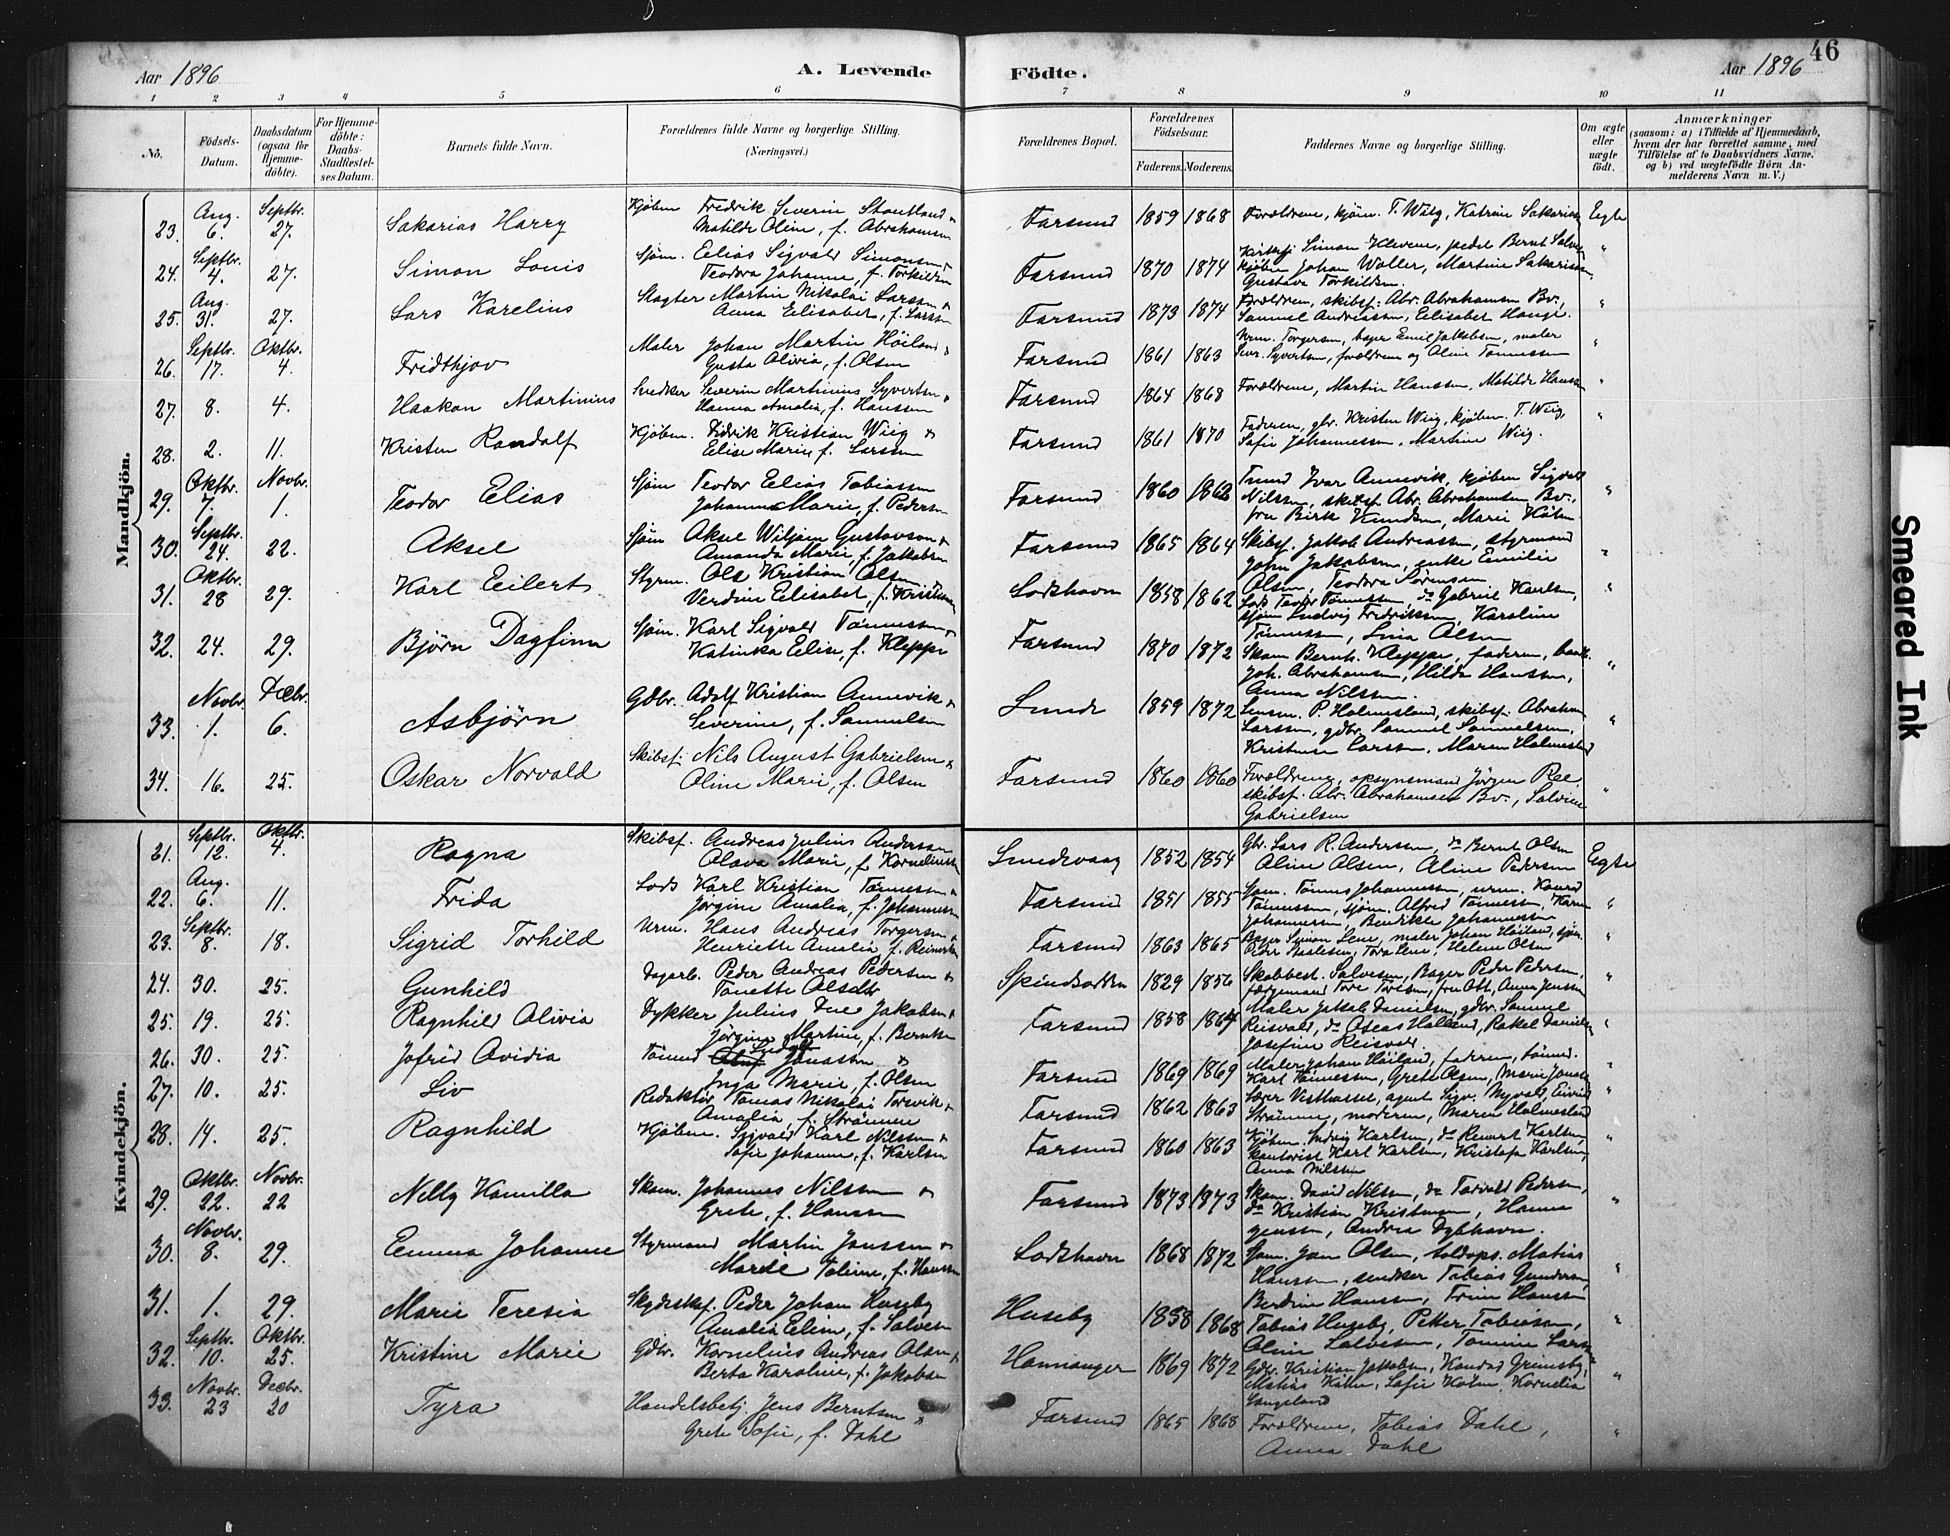 Aar 1896
A. Levende
Födte.
Aar 1896
46
1 2 3 4 5 6 7 8 9 10 11
No.
Födsels-Datum.
Daabsdatum (ogsaa for Hjemme-döbte).
For Hjemme-döbte: Daabs-Stadfæstel-ses Datum.
Barnets fulde Navn.
Forældrenes fulde Navne og borgerlige Stilling. (Næringsvei.)
Forældrenes Bopæl.
Forældrenes Födselsaar.
Faderens. Moderens.
Faddernes Navne og borgerlige Stilling.
Om ægte eller uægte födt.
Anmærkninger
(saasom: a) i Tilfælde af Hjemmedaab, hvem der har forrettet samme, med Tilföielse af to Daabsvidners Navne, og b) ved uægtefödte Börn An-melderens Navn m. V.)
Mandkjön.
23. Aug. 6. Septbr. 27. Sakarias Harry Kjöbm Fredrik Severin Stautland & Matilde Oline, f. Abrahamsen Farsund 1859 1868 Forældrene, kjöm. T. Wiig, Katrine Sakarias Egte
24. Septbr. 4. 27. Simon Louis Sjöm. Elias Sigvald Simonsen & Teodora Johanne, f. Torkildsen Farsund 1870 1874 Simon Klevene, Bernt Salve kjöbm Johan Waller, Martine Sakariasen, Gustava Torkildsen. "
25. Aug. 31. 27. Lars Karelius Slagter Martin Nikolai Larsen & Anna Elisabet, f. Larsen Farsund 1873 1874 Forældrene, skibsf. Abr. Abrahamsen Bv., Samuel Andreassen, Elisabet Hauge. "
26. Septbr. 17. Oktbr. 4. Fridthjov Maler Johan Martin Höiland & Gusta Olivia, f. Olsen Farsund 1861 1863 Urm. Torgersen, bager Emil Jakobsen, maler Sev. Syvertsen, forældrene og Aline Tönnessen "
27. 8. 4. Haakon Martinius Snedker Severin Martinius Syvertsen & Hanna Amalia, f. Hanssen Farsund 1864 1868 Forældrene, Martin Hanssen, Matilde Hanssen "
28. 2. 11. Kristen Randolf Kjöbm. Didrik Kristian Wiig & Elise Marie, f. Larssen Farsund 1861 1870 Faderen, gbr. Kristen Wiig, kjöbm. T. Wiig, Sofie Johannessen, Martine Wiig. "
29. Oktbr. 7. Novbr. 1. Teodor Elias Sjöm Teodor Elias Tobiassen Johanne Marie, f. Pedersen Farsund 1860 1862 Ivar Annevik, kjöbm Sigvald Nilssen, skibsf. Abr. Abrahamsen Bv., fru Birk Knudsen, Marie Holm. "
30. Septbr. 24. 22. Aksel Sjöm Aksel Wiljam Gustavson & Amanda Marie, f. Jakobsen Farsund 1865 1864 Skibsf. Jakob Andreassen, styrmand John Jakobsen, enke Emilie Olsen, Teodora Sörensen "
31. Oktbr. 28 29. Karl Eilert Styrm. Ole Kristian Olsen & Verdine Elisabet, f. Kristensen Lodshavn 1858 1862 Lods Teodor Tönnessen, do Gabriel Karlsen, sjöm Ludvig Fredriksen, Karoline Tönnessen, Lina Olsen "
32. 24. 29. Björn Dagfinn Sjöm. Karl Sigvald Tönnessen & Katinka Elise, f. Kleppe Farsund 1870 1872 Skom Bernh. Kleppe, faderen, Joh. Abrahamsen, Hilda Hanssen, Anna Nilssen. "
33. Novbr. 1. Decbr. 6. Asbjörn Gdbr. Adolf Kristian Annevik & Severine, f. Samuelsen Lunde 1859 1872 P. Holmesland, skibsf. Abraham Larssen, gdbr. Samuel Samuelsen, Kristense Larssen, Maren Holmesland "
34. 16. 25. Oskar Norvald Skibsf. Nils August Gabrielsen & Oline Marie, f. Olsen Farsund 1860 1860 Forældrene, opsynsmand Jörgen Ree skibsf. Abr. Abrahamsen Bv., Salvine Gabrielsen "
Kvindekjön.
21. Septbr. 12. Oktbr. 4. Ragna Skibsf. Andreas Julius Anderssen Olava Marie, f. Korneliussen Lundevaag 1852 1854 Gbr. Lars R. Anderssen, do Bernt Olsen Oline Olsen, Aline Pedersen Egte
22. Aug. 6. 11. Frida Lods Karl Kristian Tönnessen & Jörgine Amalia, f. Johannessen Farsund 1851 1855 Sjöm. Tönnes Johannessen, urm. Konrad Tönnessen, sjöm. Alfred Tönnessen, Karen Johannessen, Bendikte Johannessen "
23. Septbr. 8. 18. Sigrid Torhild Urm. Hans Andreas Torgersen & Henriette Amalia, f. Reinertsen Farsund 1863 1865 Bager Simon Lene, maler Johan Höiland, sjöm. Peder Tora Lene, Helene Olsen "
24. 30. 25. Gunhild Dagarb. Peder Andreas Pedersen & Tonette Olsdtr Spindsodden 1829 1856 Skobbest. Salvesen, Bager Peder Pedersen, færgemand Tore Toresen, fru Ott, Anna Jenssen "
25. 19. 25. Ragnhild Olivia Dykker Julius Due Jakobsen & Jörgine Martine, f. Berntsen Farsund 1858 1864 Maler Jakob Danielsen, gdbr. Samuel Reisvold, do Oseas Halland, Rakel Danielsen Josefine Reisvold. "
26. 30. 25. Jofrid Ovidia Tönned Ludolf Jonassen & Inga Marie, f. Olsen Farsund 1869 1869 Maler Johan Höiland, faderen, tönned. Karl Tönnessen, Grete Olsen, Marie Jonassen "
27. 10. 25. Liv Redaktör Tomas Nikolai Torsvik & Amalia, f. Strömme Farsund 1862 1863 Lærer Vesthassel, agent Sigv. Nyvold, Eivind Strömme, moderen, Maren Holmesland "
28. 14. 25. Ragnhild Kjöbm. Sigvald Karl Nilssen & Sofie Johanne, f. Karlsen Farsund 1860 1863 Kjöbm. Ludvig Karlsen, do Reinert Karlsen, kontorist Karl Karlsen, Kristofa Karlsen, Anna Nilssen "
29. Oktbr. 22. Novbr. 22 Nelly Kamilla Skom. Johannes Nilssen & Grete, f. Hanssen Farsund 1873 1873 Skom. David Nilsen, do Torvald Pedersen, do Kristian Kristensen, Hanna Jenssen, Andrea Dybhavn. "
30. Novbr. 8. 29. Emma Johanne Styrmand Martin Janssen & Marde Toline, f. Hanssen Lodshavn 1868 1872 Sjöm. Jan Olsen, toldops. Matias Hanssen, snedker Tobias Gundersen, Berdine Hanssen, Trine Hanssen "
31. 1. 29. Marie Teresia Skydsskf. Peder Johan Huseby Amalia Eline, f. Salvesen Huseby 1858 1868 Tobias Huseby, Petter Tobiassen, Oline Salvesen, Tomine Larssen "
32. Septbr. 10. Oktbr. 25. Kristine Marie Gdbr. Kornelius Andreas Olsen & Berta Karoline, f. Jakobsen Hananger 1869 1872 Gdbr. Kristian Jakobsen, Kondad Grimsby, Matias Kalle, Sofie Holm, Kornelia Langeland "
33. Novbr. 23 Decbr. 20 Tyra Handelsbetj. Jens Berntsen & Grete Sofie, f. Dahl Farsund 1865 1868 Forældrene, Tobias Dahl, Anna Dahl "
Smeared Ink